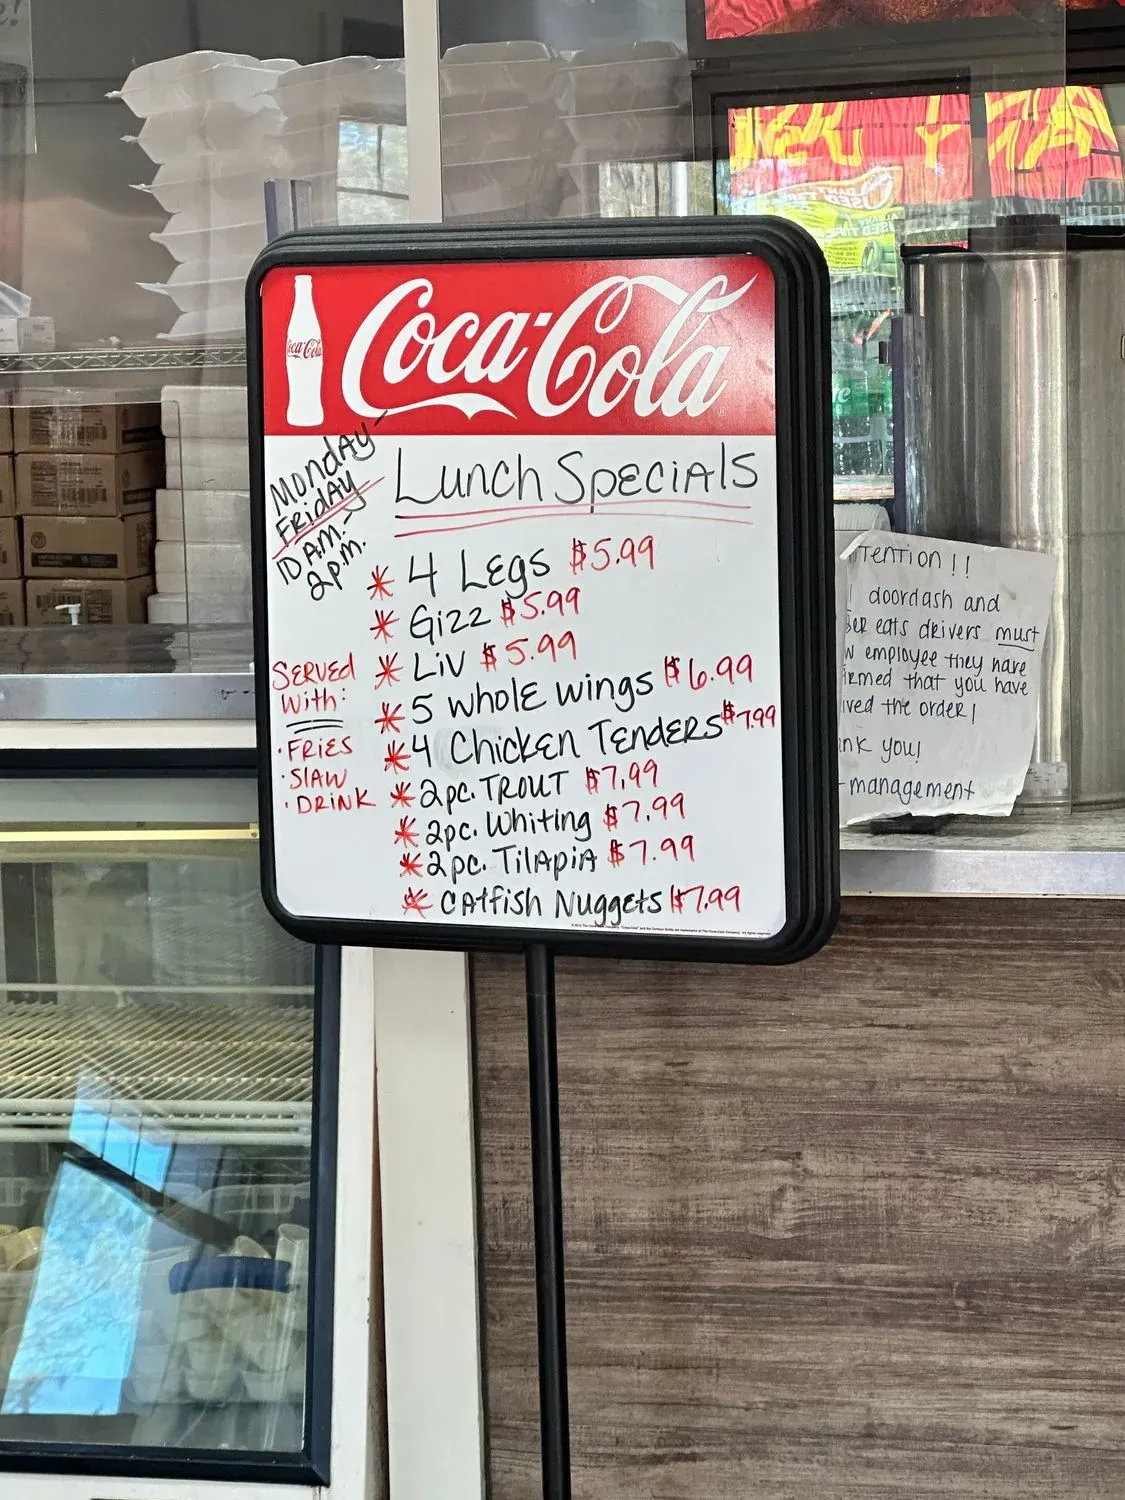 Coca-Cola
Coca-Cola
Monday-
Friday
10 A.M.-
2 p.m.
Lunch Specials
* 4 Legs $5.99
* Gizz $5.99
* Liv $5.99
* 5 whole wings $6.99
* 4 Chicken Tenders $7.99
* 2pc. Trout $7.99
* 2pc. Whiting $7.99
* 2pc. Tilapia $7.99
* Catfish Nuggets $7.99
Served
With:
· Fries
· Slaw
· Drink
tention !!
doordash and
eats drivers must
employee they have
that you have
the order!
you!
-management